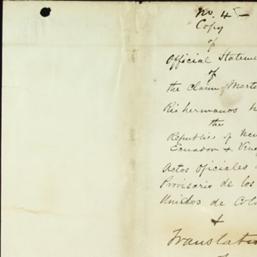 No. 4 —
Copy
of
Official Stateme
of
the Claim, Morto
Rishermanos
the
Republic of New
Ecuador & Vene
Actos Oficiales
Provisorio de los
Unidos de Colo
&
Translati